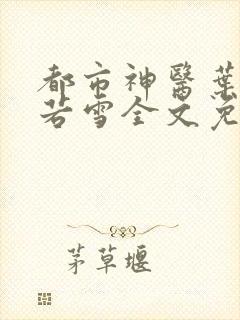 都市神醫葉
若雪全文免
茅草堰